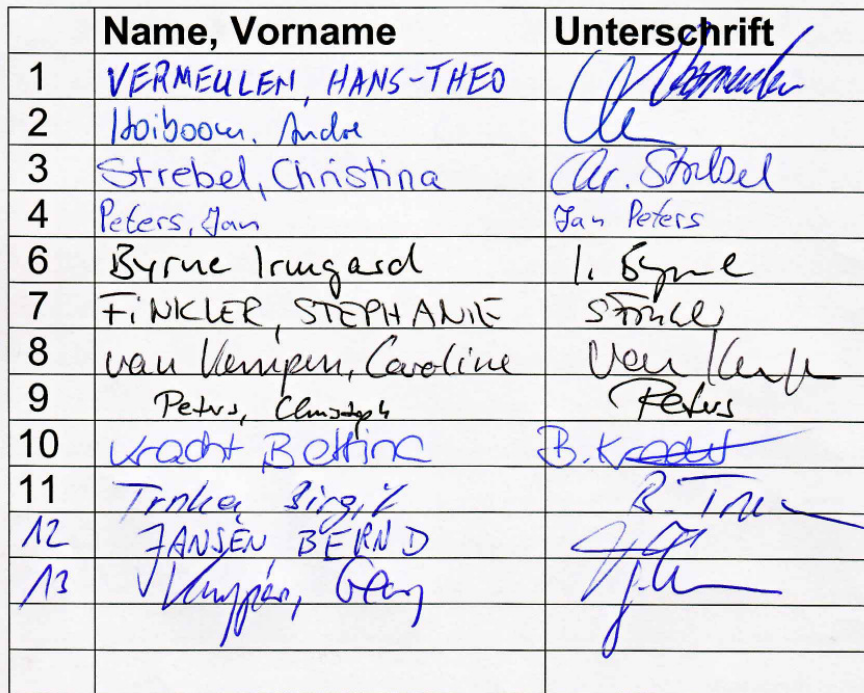 Name, Vorname Unterschrift
1 VERMEULEN, HANS-THEO Vermeulen
2 André
3 Strebel, Christina Chr. Strebel
4 Peters, Jan Jan Peters
6 Byrne Irmgard I. Byrne
7 FINKLER, STEPHANIE
8 van Kempen, Caroline van
9 Peters, Christoph Peters
10 Kracht Bettina B. Kracht
11 Trnka, Birgit B.
12 JANSEN, BERND
13 Georg